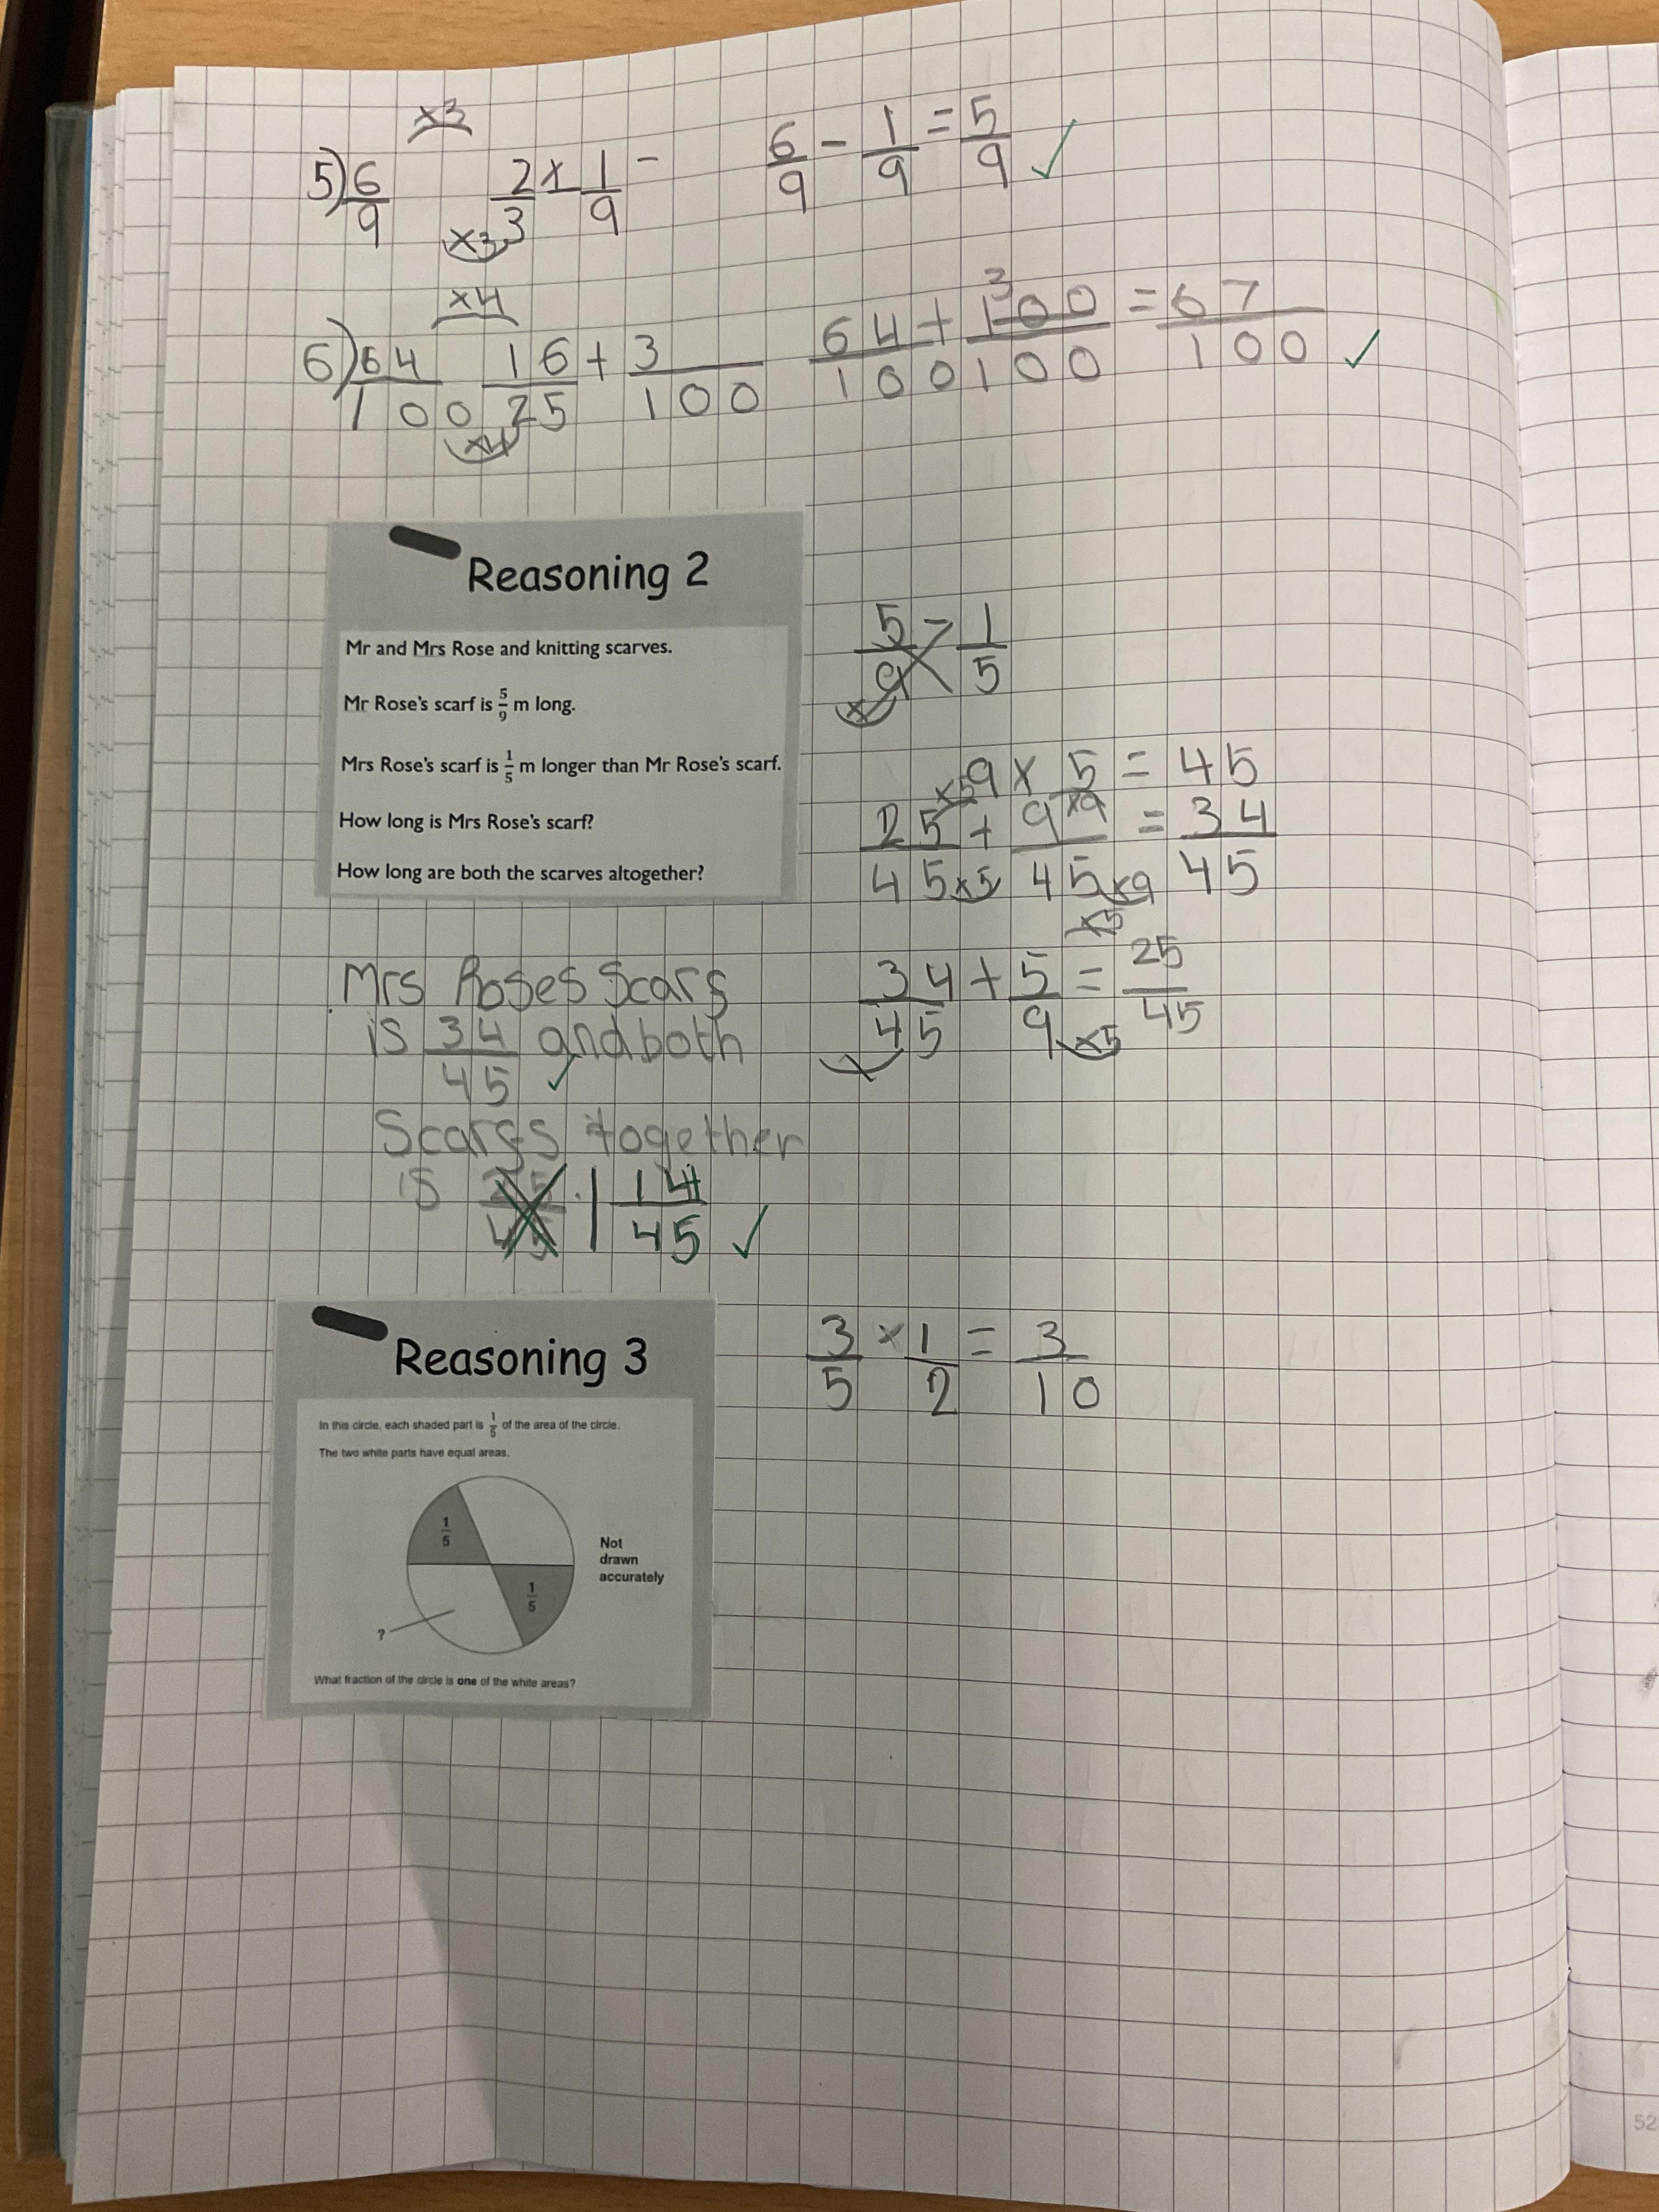 ×3
5) 6/9 2/3 × 1/9 - 6/9 - 1/9 = 5/9 ✓
×3
×4
6) 64/100 16/25 + 3/100 64/100 + 3 100/100 = 67/100 ✓
×4
Reasoning 2
Mr and Mrs Rose and knitting scarves.
Mr Rose's scarf is 5/9 m long.
Mrs Rose's scarf is 1/5 m longer than Mr Rose's scarf.
How long is Mrs Rose's scarf?
How long are both the scarves altogether?
5/9 - 1/5
×
9 × 5 = 45
×5 ×9
25/45 + 9/45 = 34/45
×5 ×9
×5
34/45 + 5/9 = 25/45
×5
Mrs Roses Scarf
is 34/45 and both ✓
Scarfs together
is 1 14/45 ✓
Reasoning 3
In this circle, each shaded part is 1/5 of the area of the circle.
The two white parts have equal areas.
1/5
1/5
Not
drawn
accurately
?
What fraction of the circle is one of the white areas?
3/5 × 1/2 = 3/10
52